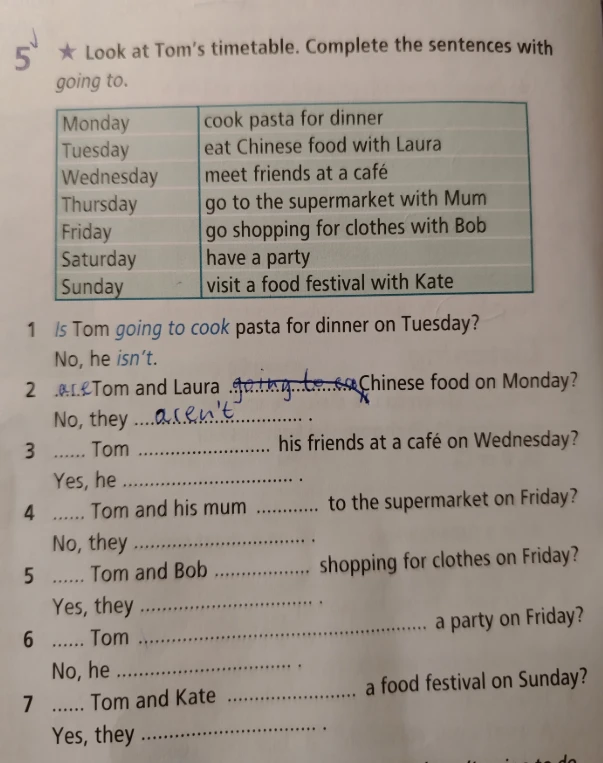 5 ★ Look at Tom's timetable. Complete the sentences with
going to.
Monday cook pasta for dinner
Tuesday eat Chinese food with Laura
Wednesday meet friends at a café
Thursday go to the supermarket with Mum
Friday go shopping for clothes with Bob
Saturday have a party
Sunday visit a food festival with Kate
1 Is Tom going to cook pasta for dinner on Tuesday?
No, he isn't.
2 are Tom and Laura going to eat Chinese food on Monday?
No, they aren't .
3 ...... Tom .......................... his friends at a café on Wednesday?
Yes, he ................................. .
4 ...... Tom and his mum ............ to the supermarket on Friday?
No, they ................................. .
5 ...... Tom and Bob .................. shopping for clothes on Friday?
Yes, they ................................. .
6 ...... Tom ....................................................... a party on Friday?
No, he ................................. .
7 ...... Tom and Kate ......................... a food festival on Sunday?
Yes, they ................................. .